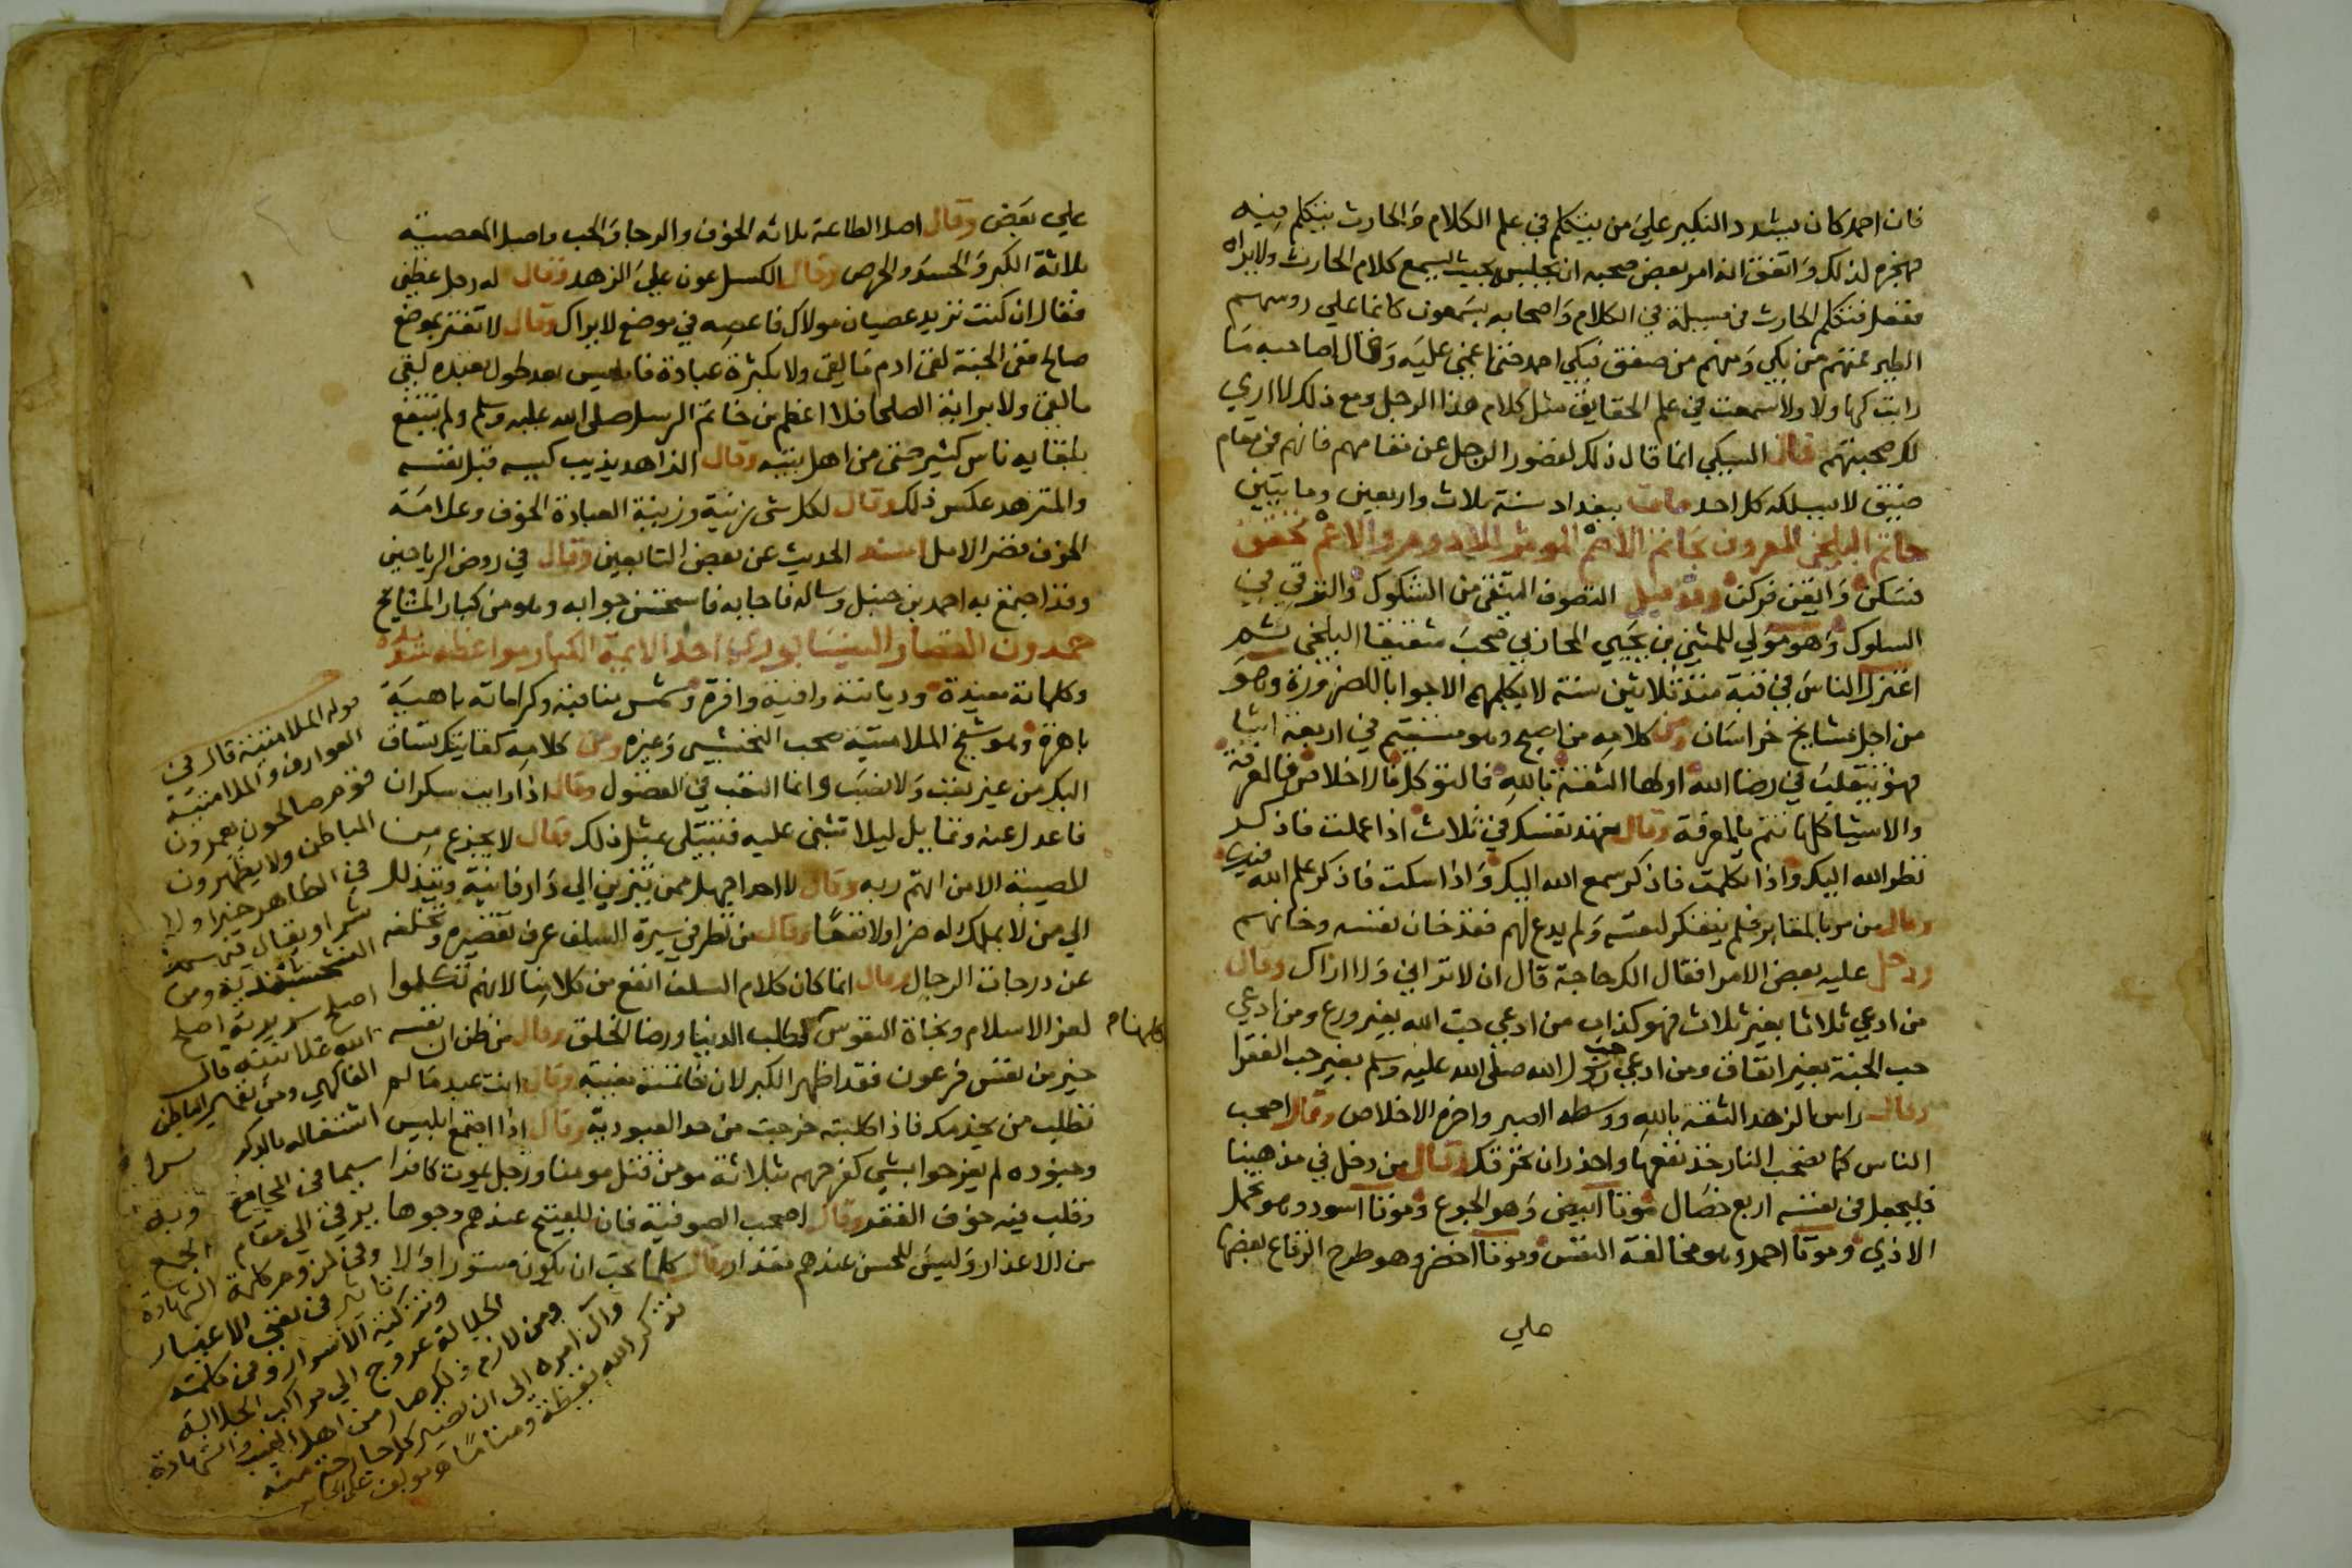 فان احمد كان يشدد النكير علي من يتكلم في علم الكلام والحارث يتكلم فيه
فهجره لذلك واتفق انه امر بعض صحبه ان يجلسه بحيث يسمع كلام الحارث ولا يراه
ففعل فتكلم الحارث في مسيلة في الكلام واصحابه يسمعون كانما علي روسهم
الطير فمنهم من بكي ومنهم من صعق فبكي احمد حتي اغمي عليه وقال لصاحبه ما
رايت كهاولا ولا سمعت في علم الحقايق مثل كلام هذا الرجل ومع ذلك لا اري
لك صحبتهم قال السبكي انما قال ذلك لقصور الرجل عن مقامهم فانهم في مقام
ضيق لا يسلكه كل احد مات ببغداد سنة ثلاث واربعين وماتين
حاتم البلخي المعروف بحاتم الاصم الموثر للادوم والاعم تحقق
فسكن وايقن فركن وقد قيل التصوف التنقي من الشكوك والترقي في
السلوك وهو مولي للمثني بن يحيي المحاربي صحب شقيقا البلخي ثم
اعتزل الناس في قبة منذ ثلاثين سنة لا يكلمهم الا جوابا للضرورة وهو
من اجل مشايخ خراسان ومن كلامه من اصبح وهو مستقيم في اربعة اشيا
فهو يتقلب في رضا الله اولها الثقة بالله فالتوكل فالاخلاص فالمعرفة
والاشيا كلها تتم بالمعرفة وقال تعهد نفسك في ثلاث اذا عملت فاذكر
نظر الله اليك واذا تكلمت فاذكر سمع الله اليك واذا سكت فاذكر علم الله فيك
وقال من مر بالمقابر فلم يتفكر لنفسه ولم يدع لهم فقد خان نفسه وخانهم
ودخل عليه بعض الامرا فقال الك حاجة قال ان لا تراني ولا اراك وقال
من ادعي ثلاثا بغير ثلاث فهو كذاب من ادعي حب الله بغير ورع ومن ادعي
حب الجنة بغير انفاق ومن ادعي حب رسول الله صلي الله عليه وسلم بغير حب الفقرا
وقال راس الزهد الثقة بالله ووسطه الصبر واخره الاخلاص وقال اصحب
الناس كما تصحب النار خذ نفعها واحذر ان تحرقك وقال من دخل في مذهبنا
فليجعل في نفسه اربع خصال موتا ابيض وهو الجوع وموتا اسود وهو تحمل
الاذي وموتا احمر وهو مخالفة النفس وموتا اخضر وهو طرح الرقاع بعضها
علي
علي بعض وقال اصل الطاعة ثلاثه الخوف والرجا والحب واصل المعصية
ثلاثة الكبر والحسد والحرص وقال الكسل عون علي الزهد وقال له رجل عظني
فقال ان كنت تريد عصيان مولاك فاعصه في موضع لا يراك وقال لا تغتر بموضع
صالح ففي الجنة لقي ادم ما لقي ولا بكثرة عبادة فابليس بعد طول تعبده لقي
ما لقي ولا برايه الصلحا فلا اعظم من خاتم الرسل صلي الله عليه وسلم ولم ينتفع
بلقايه ناس كثير حتي من اهل بيته وقال الزاهد يذيب كيسه قبل نفسه
والمتزهد عكس ذلك وقال لكل شي زينة وزينة العبادة الخوف وعلامة
الخوف قصر الامل اسند الحديث عن بعض التابعين وقال في روض الرياحين
وقد اجتمع به احمد بن حنبل وساله فاجابه فاستحسن جوابه وهو من كبار المشايخ
حمدون القصار النيسابوري احد الايمة الكبار مواعظه شديدة
وكلماته مفيدة وديانته وافية وافرة وشمس مناقبه وكراماته باهية
باهرة وهو شيخ الملامتية صحب النخشبي وغيره ومن كلامه كفايتك تساق
اليك من غير تعب ولا نصب وانما التعب في الفضول وقال اذا رايت سكران
فاعدل عنه وتمايل ليلا تثني عليه فتبتلي بمثل ذلك وقال لا يجزع من
المصيبة الا من اتهم ربه وقال لا احد اجهل ممن يتزين الي دار فانية ويتذلل
الي من لا يملك له ضرا ولا نفعا وقال من نظر في سيرة السلف عرف تقصيره وتخلفه
عن درجات الرجال وقال انما كان كلام السلف انفع من كلامنا لانهم تكلموا
لعز الاسلام ونجاة النفوس لطلب الدنيا ورضا الخلق وقال من ظن ان نفسه
خير من نفس فرعون فقد اظهر الكبر لان خاتمته مغيبة وقال انت عبد ما لم
تطلب من يخدمك فاذا طلبته خرجت من حد العبودية وقال اذا اجتمع ابليس
وجنوده لم يفرحوا بشي كفرحهم بثلاثة مومن قتل مومنا ورجل يموت كافرا
وقلب فيه خوف الفقر وقال اصحب الصوفية فان للقبيح عندهم وجوها
من الاعذار وليس للحسن عندهم مقدار وقال كلما تحب ان يكون مستورا
قوله الملامتية قال في
العوارف والملامتية
قوم صالحون يعمرون
الباطن ولا يظهرون
في الظاهر خيرا ولا
شرا ويقال فيهم
النقشبندية ومن
اصلح سريرته اصلح
الله علانيته قال
الفاكهي ومن تطهير الباطن
اشتغاله بالذكر سرا
سيما في المجامع وبه
يرقي الي مقام الجمع
وفي لزوم كلمة الشهادة
تاثير في نفي الاغيار
وتزكية الاسرار وفي كلمة
الجلالة عروج الي مراتب الجلالية
ومن لازم ذكر صار من اهل الغيب والشهادة
وآل امره الي ان تصير كل جارحة منه
تذكر الله يقظة ومناما